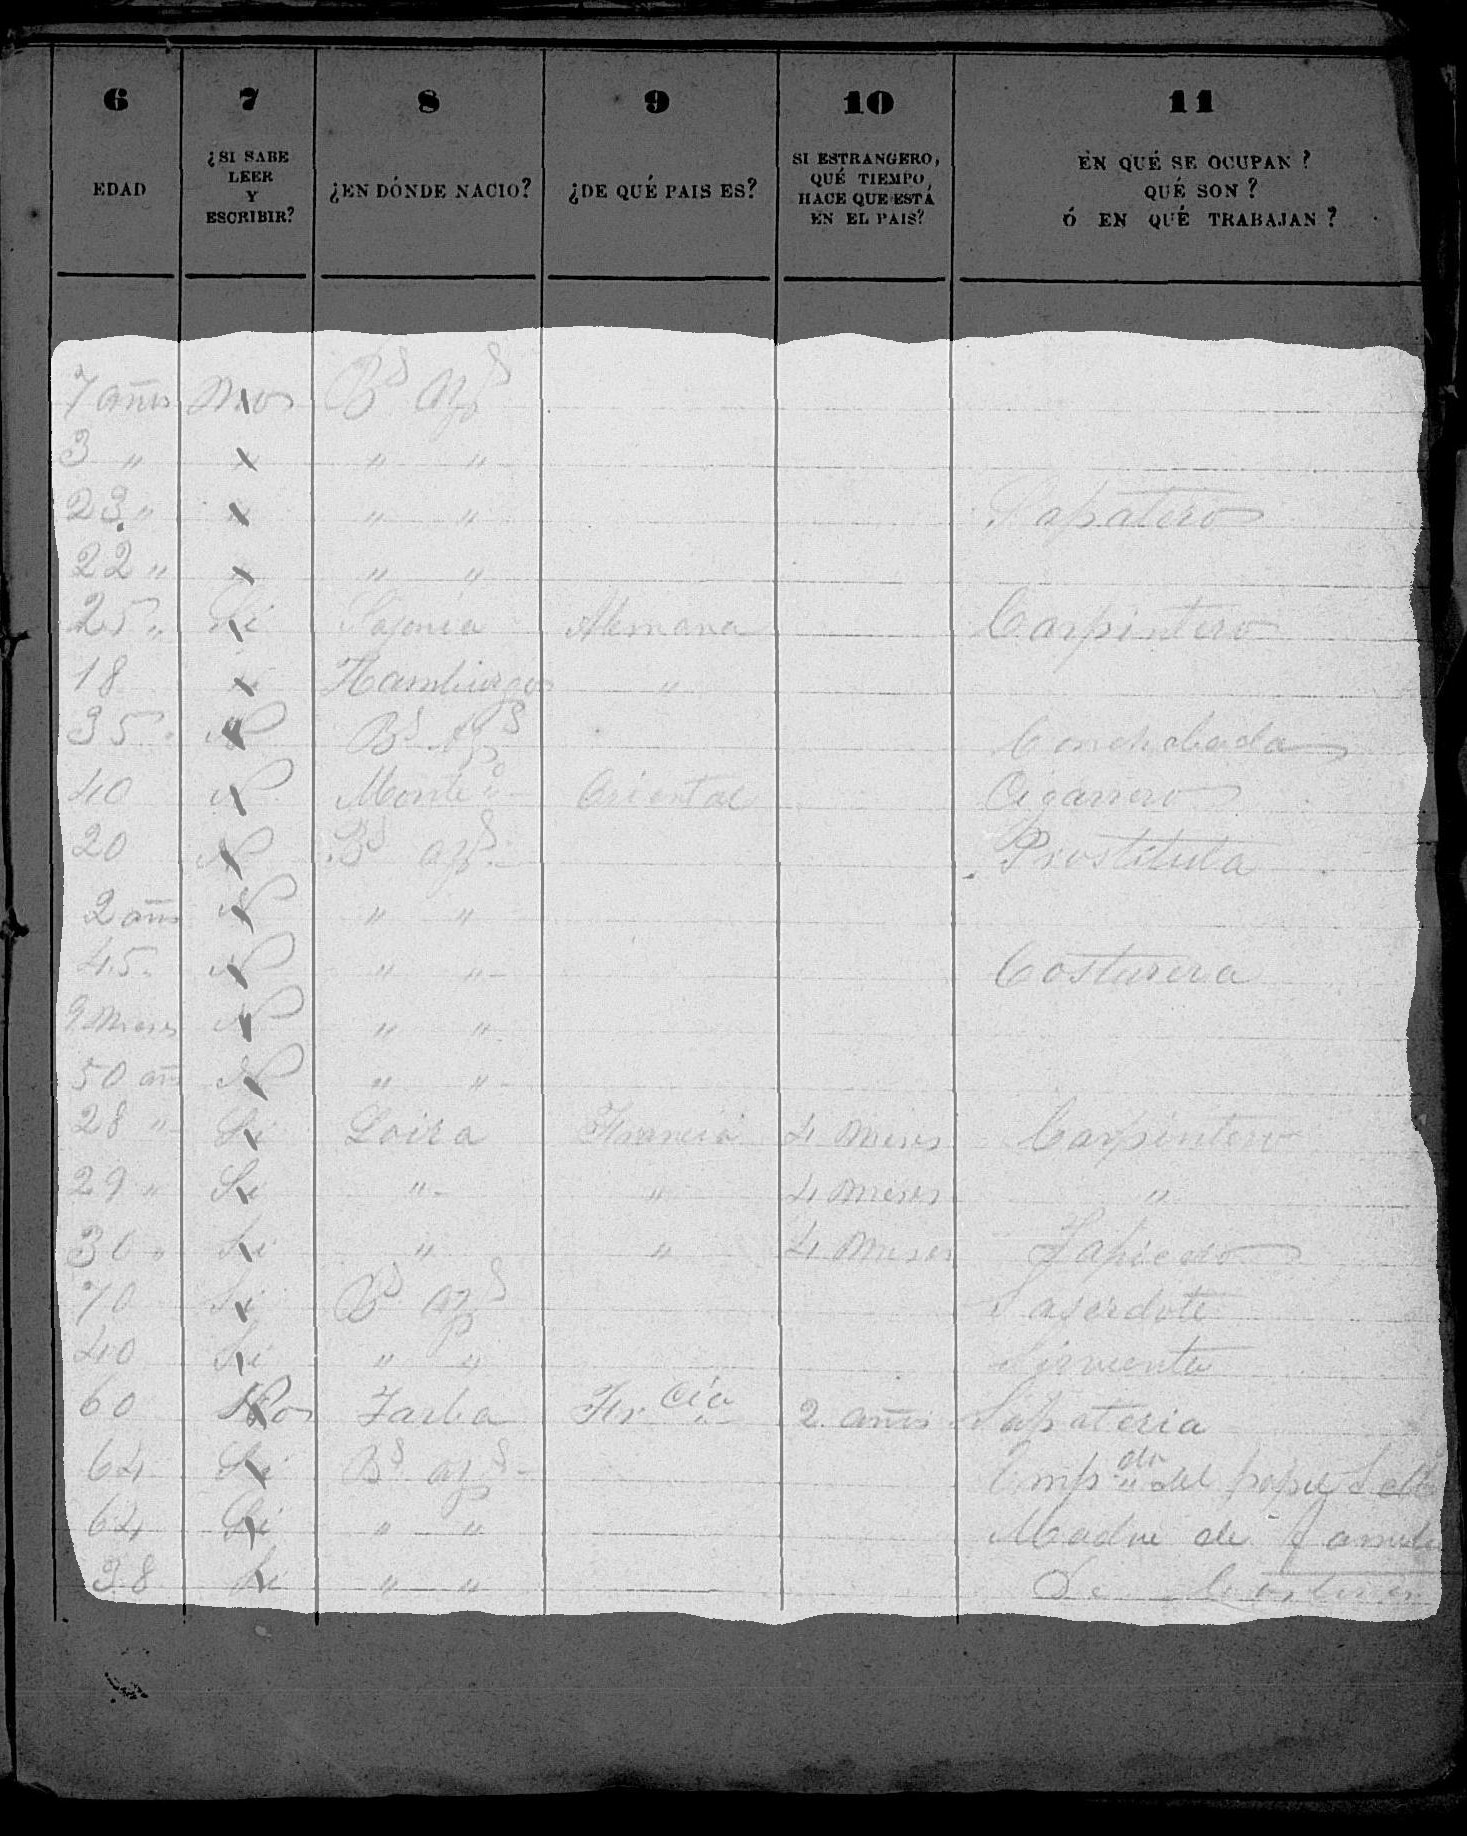 6 7 8 9 10 11
EDAD ¿SI SABE LEER Y ESCRIBIR? ¿EN DÓNDE NACIO? ¿DE QUÉ PAIS ES? SI ESTRANGERO, QUÉ TIEMPO HACE QUE ESTÁ EN EL PAIS? EN QUÉ SE OCUPAN? QUÉ SON? Ó EN QUÉ TRABAJAN?
7 años Bs Ays
3 " " "
23 " " " Sapatero
22 " " "
25 " Si Sajonia Alemana Carpintero
18 Hamburgo "
35 N Bs Ays Conchabada
40 N Monteo Oriental Cigarrero
20 N Bs Ays Prostituta
2 años N " "
45 N " " Costurera
9 meses N " "
50 añ N " "
28 " Si Loira Francia 4 meses Carpintero
29 " Si " " 4 meses "
30 " Si " " 4 meses Tapicero
70 Si Bs Ays Saserdote
40 Si " " Sirvienta
60 No Tarba Frcia 2 años Sapateria
64 Si Bs Ays Empdo del papel Sell
64 Si " " Madre de familia
38 Si " " De Costuras